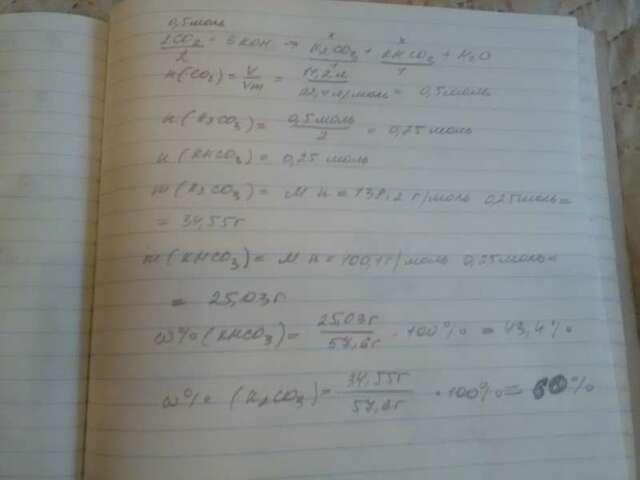 0,5моль x x
2CO₂ + 3KOH → K₂CO₃ + KHCO₃ + H₂O
2 1 1
n(CO₂) = V/Vm = 11,2л/22,4л/моль = 0,5моль
n(K₂CO₃) = 0,5моль/2 = 0,25моль
n(KHCO₃) = 0,25моль
m(K₂CO₃) = M n = 138,2г/моль 0,25моль=
= 34,55г
m(KHCO₃) = M n = 100,1г/моль 0,25моль=
= 25,03г
ω%(KHCO₃) = 25,03г/57,6г · 100% = 43,4%
ω% (K₂CO₃) = 34,55г/57,6г · 100% = 60%